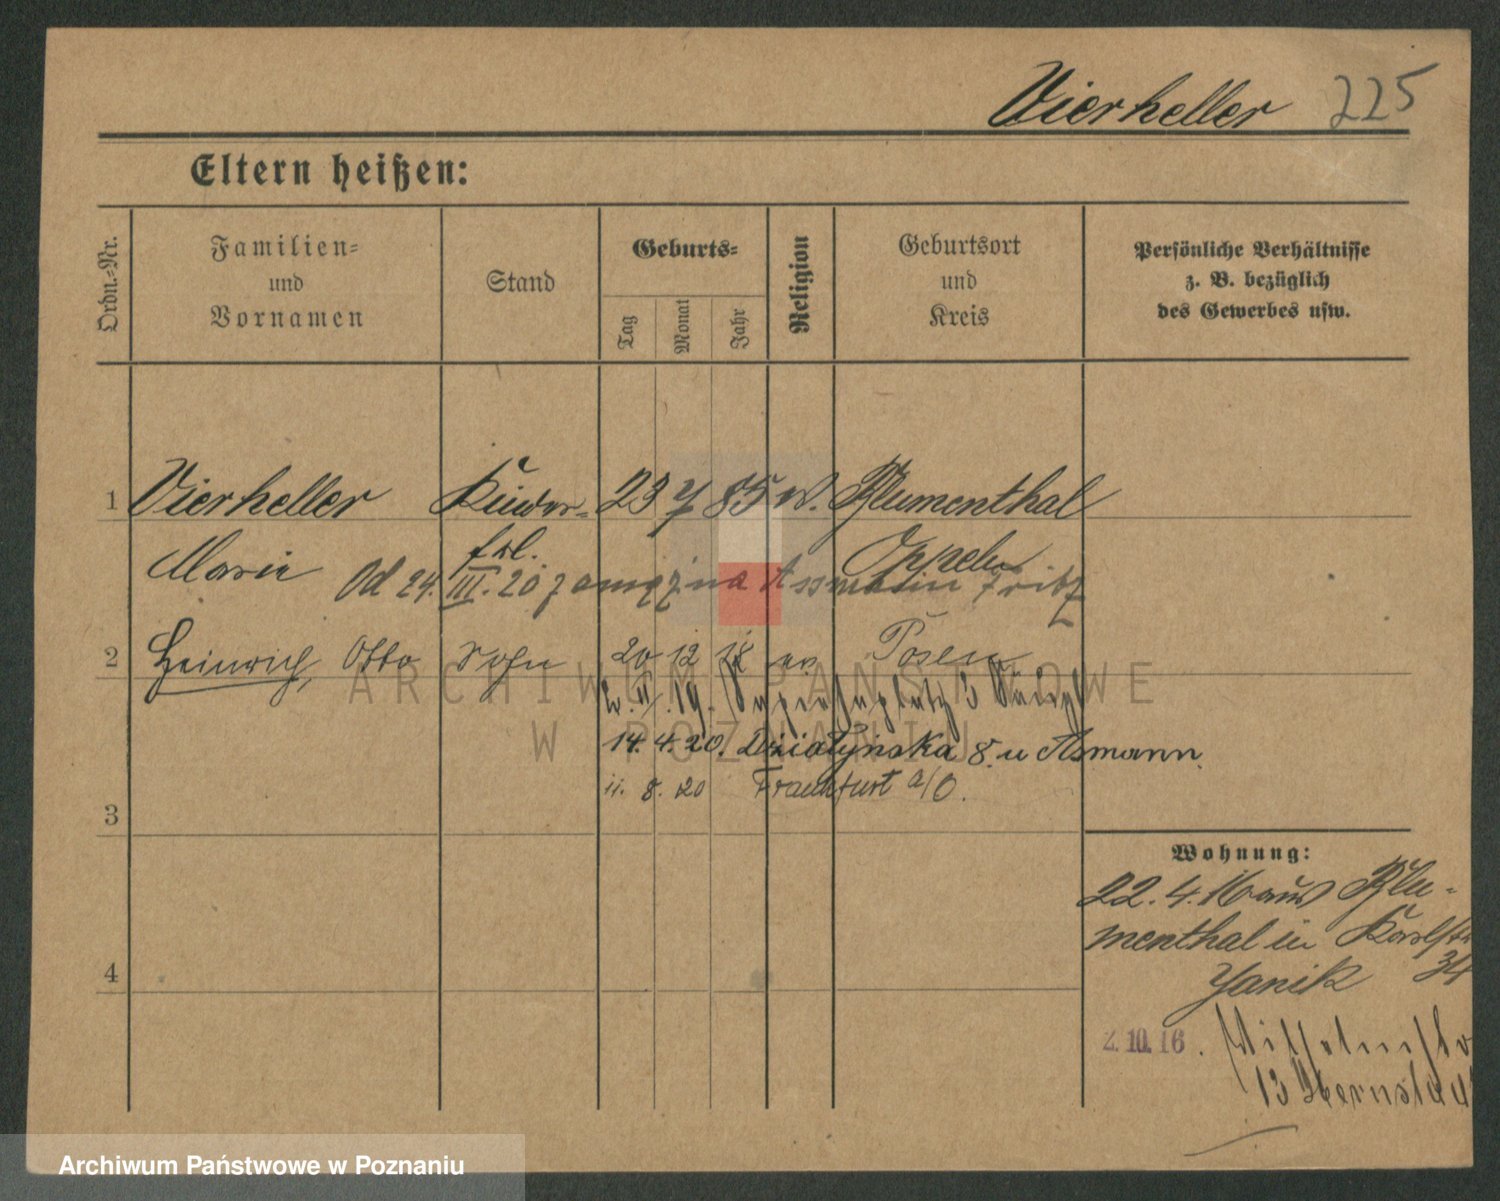 Vierheller 225
Eltern heißen:
Ordn.-Nr.
Familien-
und
Vornamen
Stand
Geburts-
Tag
Monat
Jahr
Religion
Geburtsort
und
Kreis
Persönliche Verhältnisse
z. B. bezüglich
des Gewerbes usw.
1 Vierheller Kinder- 23 7 85 ev. Blumenthal
Marie frl. Oppeln
Od 24. III. 20 zamęzna Assmann Fritz
2 Heinrich, Otto Sohn 20 12 18 ev Posen
19. Sapiehaplatz 3
14. 4. 20. Działyńska 8. u Asmann.
11. 8. 20 Frankfurt a/O.
3
Wohnung:
22. 4. 16 aus Blu-
menthal in Karlstr
Yanik 34
4
2.10.16. Wilhelmstr
13
ARCHIWUM PAŃSTWOWE
W POZNANIU
Archiwum Państwowe w Poznaniu